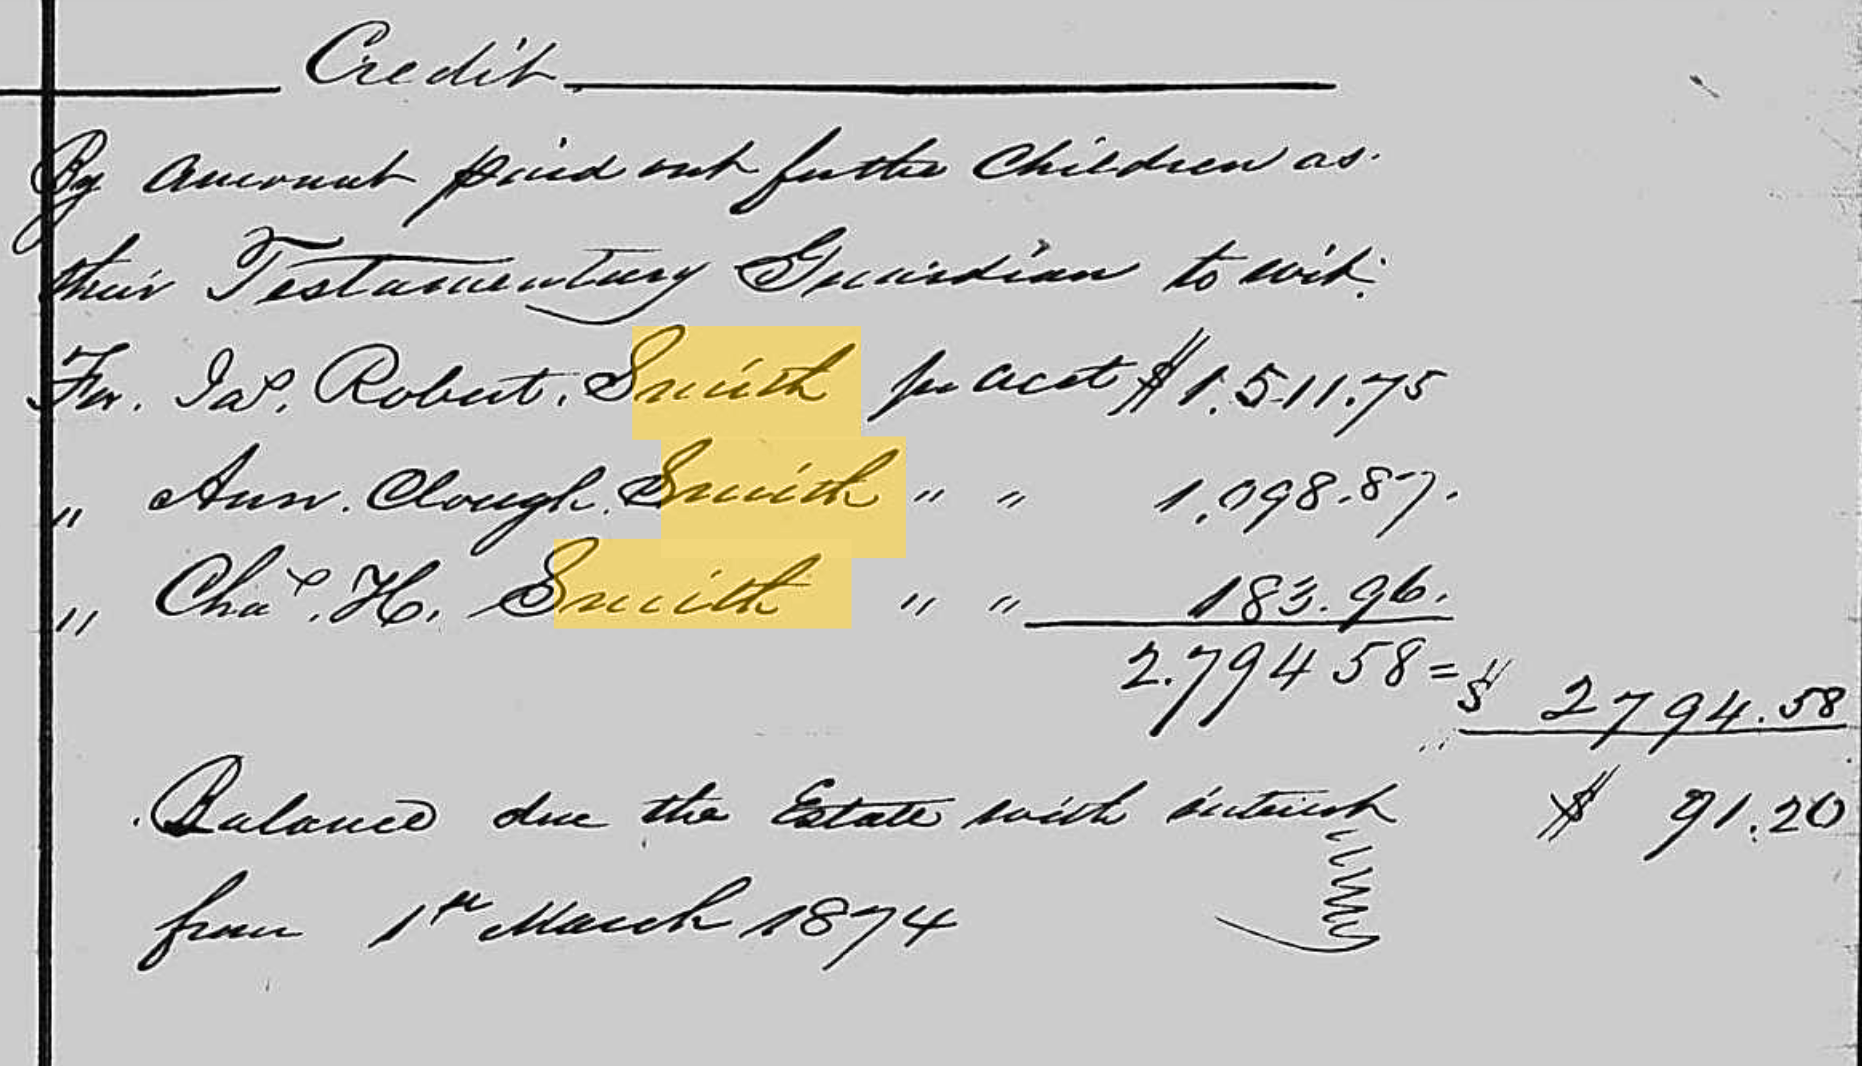 Credit
By amount paid out for the Children as
their Testamentary Guardian to wit:
For. Jas. Robert. Smith per acct $1.511.75
" Ann. Clough. Smith " " 1.098.87.
" Chas. H. Smith " " 183.96.
2.794 58 = $ 2794.58
Balance due the Estate with interest $ 91.20
from 1st March 1874